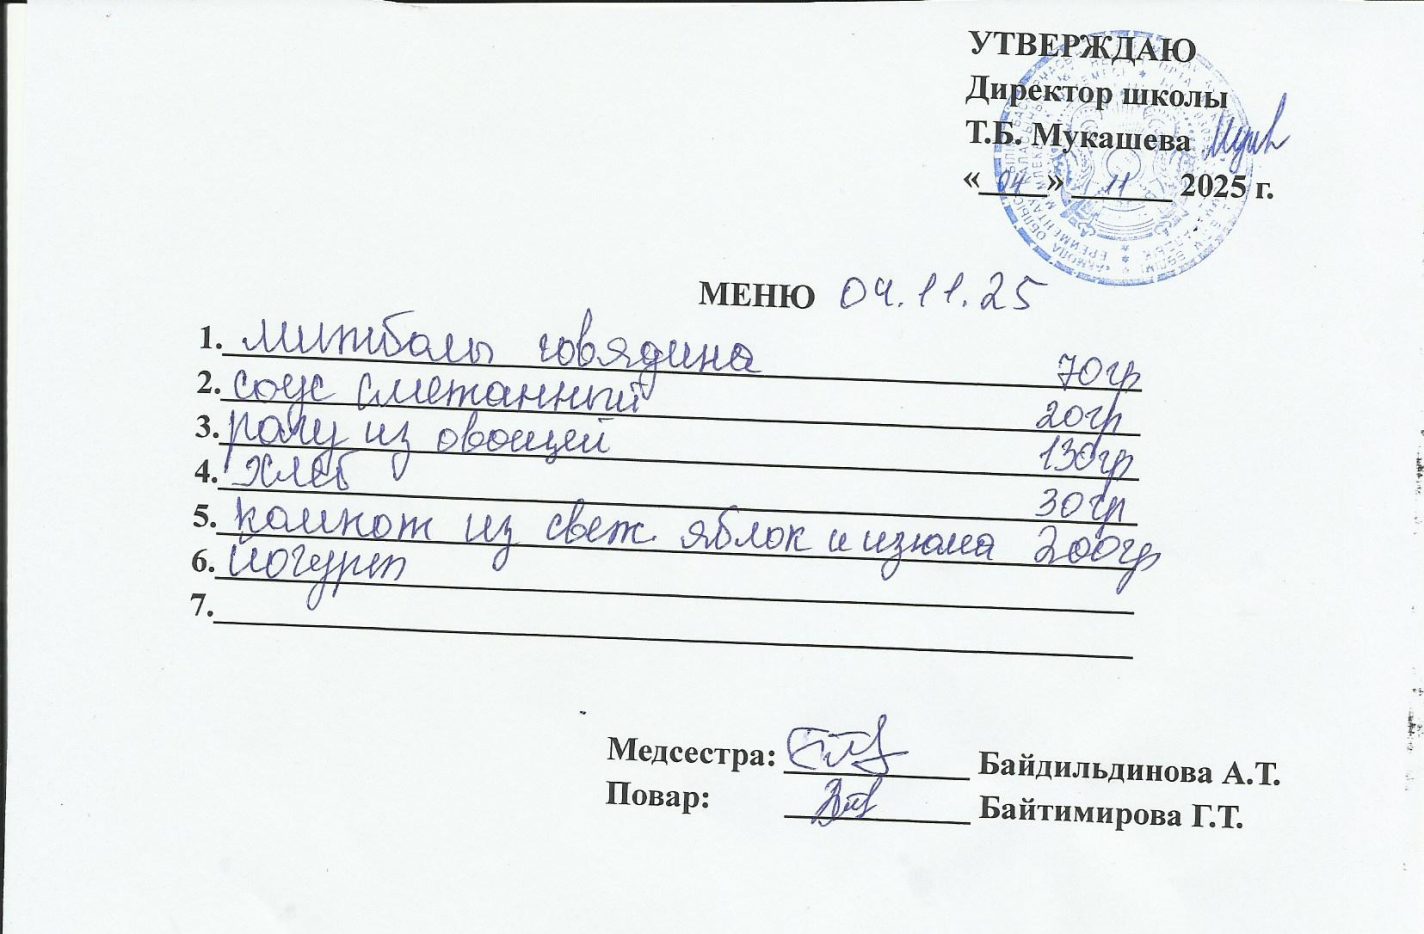 УТВЕРЖДАЮ
Директор школы
Т.Б. Мукашева
«04» 11 2025 г.
МЕНЮ 04.11.25
1. митболы говядина 70гр
2. соус сметанный 20гр
3. рагу из овощей 130гр
4. хлеб 30гр
5. компот из свеж. яблок и изюма 200гр
6. йогурт
7.
Медсестра: Байдильдинова А.Т.
Повар: Байтимирова Г.Т.